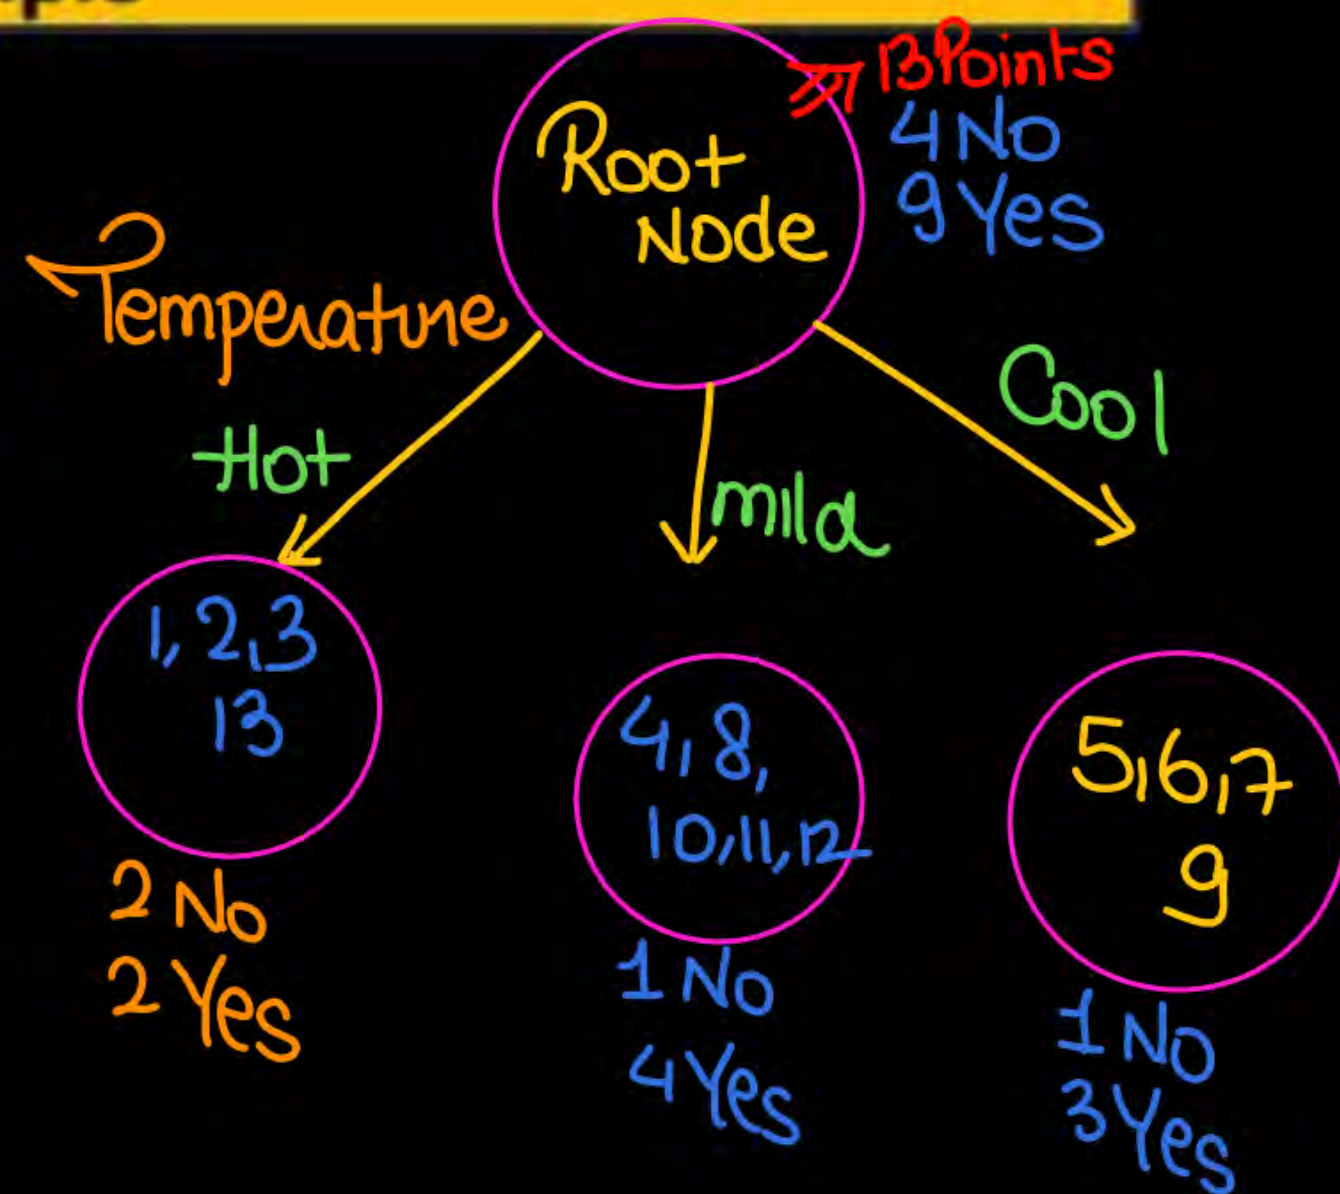 Root
Node
13 Points
4 No
9 Yes
Temperature
Hot
mild
Cool
1, 2, 3
13
2 No
2 Yes
4, 8,
10, 11, 12
1 No
4 Yes
5, 6, 7
9
1 No
3 Yes